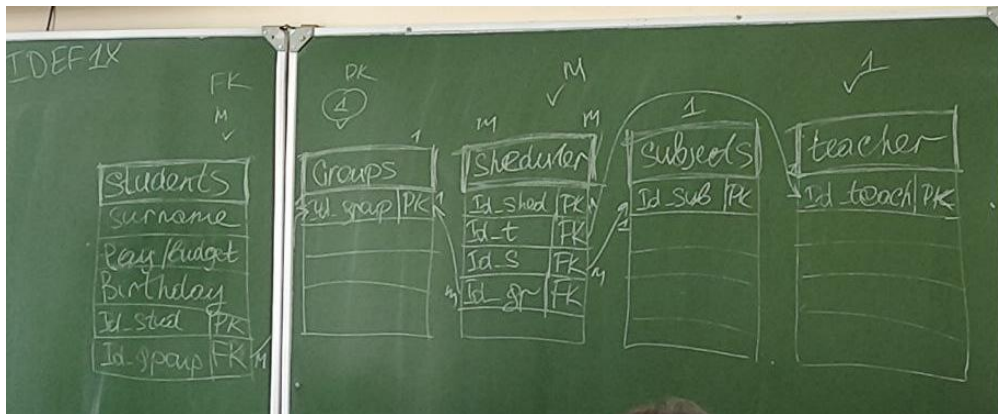 IDEF1X
FK
M
students
surname
Pay/Budget
Birthday
Id_stud PK
Id_group FK M
PK
1
1
Groups
Id_group PK 1
M
M M
Sheduler
Id_shed PK
Id_t FK
Id_S FK M
M Id_gr FK
1
subjects
1 Id_sub PK
1
teacher
Id_teach PK